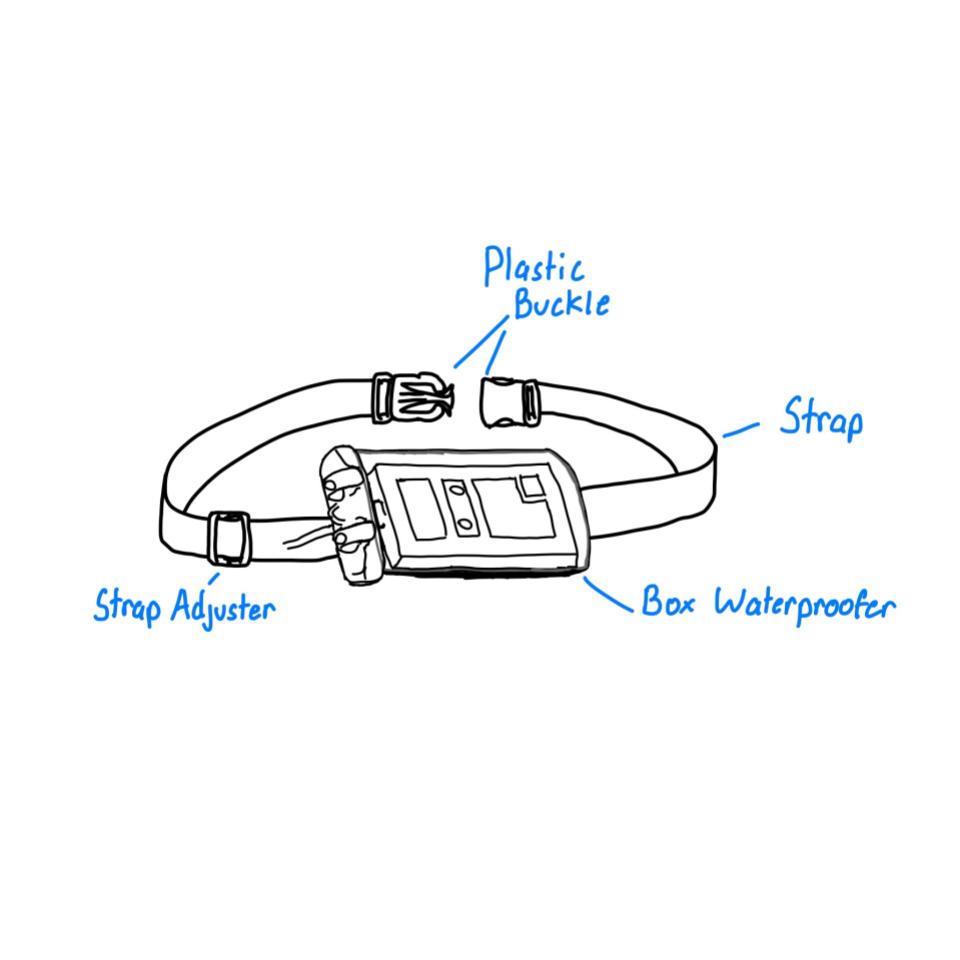 Plastic
Buckle
Strap
Strap Adjuster
Box Waterproofer